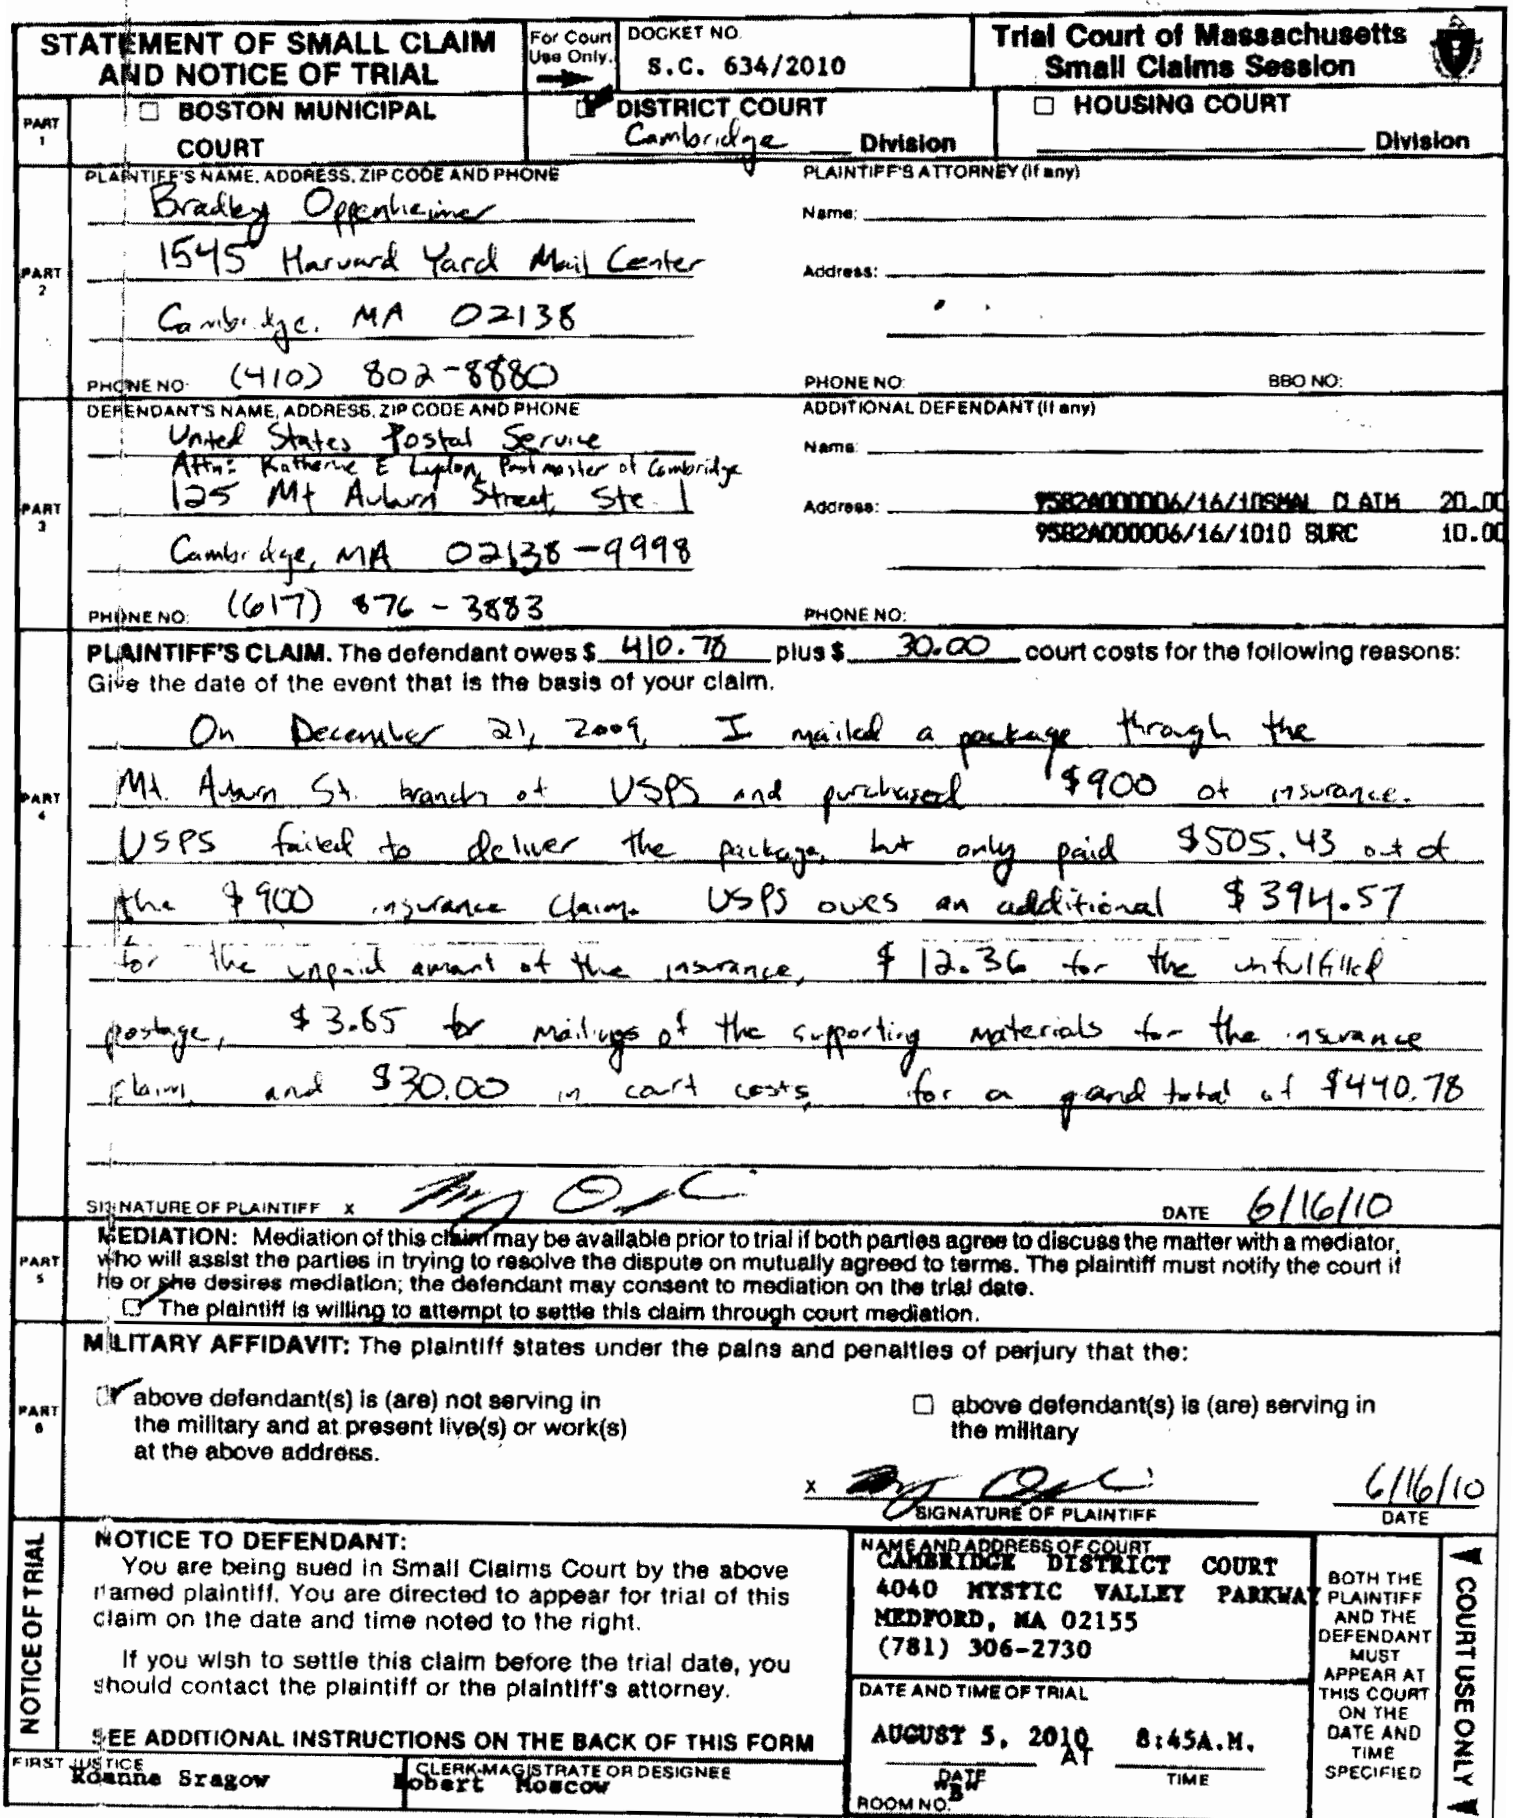 STATEMENT OF SMALL CLAIM
AND NOTICE OF TRIAL
For Court
Use Only.
DOCKET NO.
S.C. 634/2010
Trial Court of Massachusetts
Small Claims Session
PART
1
BOSTON MUNICIPAL
COURT
DISTRICT COURT
Cambridge Division
HOUSING COURT
Division
PART
2
PLAINTIFF'S NAME, ADDRESS, ZIP CODE AND PHONE
Bradley Oppenheimer
1545 Harvard Yard Mail Center
Cambridge, MA 02138
PHONE NO: (410) 802-8880
PLAINTIFF'S ATTORNEY (if any)
Name:
Address:
PHONE NO:
BBO NO:
PART
3
DEFENDANT'S NAME, ADDRESS, ZIP CODE AND PHONE
United States Postal Service
Attn: Katherine E Lydon, Postmaster of Cambridge
125 Mt Auburn Street, Ste 1
Cambridge, MA 02138-9998
PHONE NO: (617) 876-3883
ADDITIONAL DEFENDANT (if any)
Name:
Address:
9582A000006/16/10SMAL CLAIM 20.00
9582A000006/16/1010 SURC 10.00
PHONE NO:
PART
4
PLAINTIFF'S CLAIM. The defendant owes $ 410.78 plus $ 30.00 court costs for the following reasons:
Give the date of the event that is the basis of your claim.
On December 21, 2009, I mailed a package through the
Mt. Auburn St. branch of USPS and purchased $900 of insurance.
USPS failed to deliver the package, but only paid $505.43 out of
the $900 insurance claim. USPS owes an additional $394.57
for the unpaid amount of the insurance, $12.36 for the unfulfilled
postage, $3.85 for mailings of the supporting materials for the insurance
claim, and $30.00 in court costs, for a grand total of $440.78
SIGNATURE OF PLAINTIFF X
DATE 6/16/10
PART
5
MEDIATION: Mediation of this claim may be available prior to trial if both parties agree to discuss the matter with a mediator,
who will assist the parties in trying to resolve the dispute on mutually agreed to terms. The plaintiff must notify the court if
he or she desires mediation; the defendant may consent to mediation on the trial date.
The plaintiff is willing to attempt to settle this claim through court mediation.
PART
6
MILITARY AFFIDAVIT: The plaintiff states under the pains and penalties of perjury that the:
above defendant(s) is (are) not serving in
the military and at present live(s) or work(s)
at the above address.
above defendant(s) is (are) serving in
the military
X
SIGNATURE OF PLAINTIFF
6/16/10
DATE
NOTICE OF TRIAL
NOTICE TO DEFENDANT:
You are being sued in Small Claims Court by the above
named plaintiff. You are directed to appear for trial of this
claim on the date and time noted to the right.
If you wish to settle this claim before the trial date, you
should contact the plaintiff or the plaintiff's attorney.
SEE ADDITIONAL INSTRUCTIONS ON THE BACK OF THIS FORM
NAME AND ADDRESS OF COURT
CAMBRIDGE DISTRICT COURT
4040 MYSTIC VALLEY PARKWAY
MEDFORD, MA 02155
(781) 306-2730
DATE AND TIME OF TRIAL
AUGUST 5, 2010 AT 8:45A.M.
DATE
TIME
ROOM NO. "B"
BOTH THE
PLAINTIFF
AND THE
DEFENDANT
MUST
APPEAR AT
THIS COURT
ON THE
DATE AND
TIME
SPECIFIED
COURT USE ONLY
FIRST JUSTICE
Roanne Sragow
CLERK-MAGISTRATE OR DESIGNEE
Robert Moscow